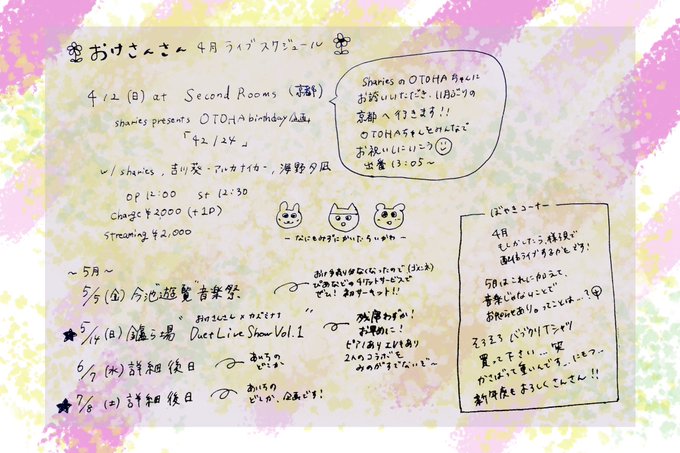 おけさんさん 4月 ライブスケジュール
4/2 (日) at Second Rooms (京都)
sharies presents OTOHA birthday企画
「42/24」
w/ sharies, 吉川葵・アルカナイカー, 海野夕凪
OP 12:00 St 12:30
Charge ¥2000 (+1D)
Streaming ¥2,000
shariesのOTOHAちゃんに
お誘いいただき、11月ぶりの
京都へ行きます!!
OTOHAちゃんをみんなで
お祝いしにいこう
出番 13:05～
－なにもみずにかいたちいかわ－
～5月～
5/5 (金) 今池"遊覧"音楽祭
ぴあなどの4チケットサービスで
ぜひ! 初サーキット!!
おけさんさん × カズミナナ
5/14 (日) 鑪ら場 "Duet Live Show Vol.1"
残席わずか!
お早めに!
ピアノあり エレキあり
2人のコラボを
みのがすでないぞ～
6/7 (水) 詳細後日
あいちの
どこか、
7/8 (土) 詳細後日
あいちの
どこか、企画です!
ぼやきコーナー
4月
もしかしたら、様子見で
配信ライブするかもです!
5月はこれに加えて、
音楽じゃないことで
お知らせあり。ってことは…?
そろそろ バックプリTシャツ
買って下さい…笑
かさばって重いんです…にもつ…
新年度もよろしくさんさん!!